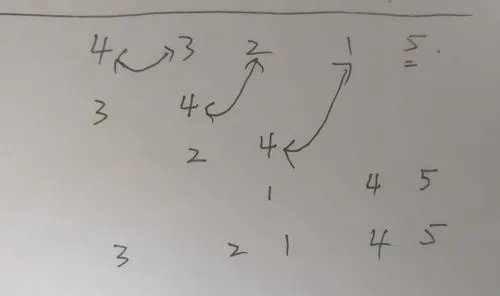 4 3 2 1 5.
3 4
2 4
1 4 5
3 2 1 4 5